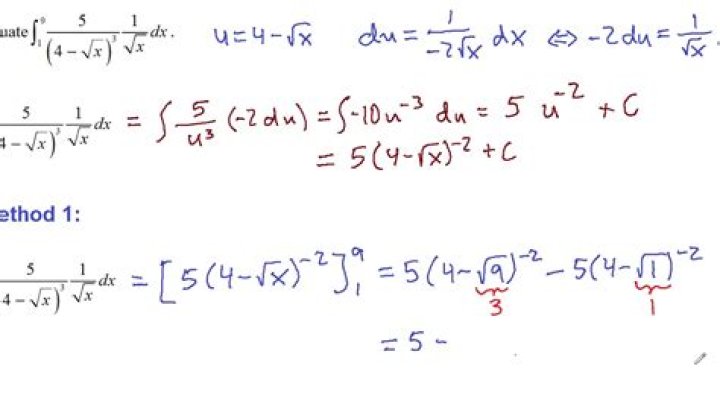 uate ∫₁⁹ 5/(4 − √x)³ 1/√x dx. u = 4 − √x du = 1/(−2√x) dx ⇔ −2du = 1/√x .
5/(4 − √x)³ 1/√x dx = ∫ 5/u³ (−2du) = ∫ −10u⁻³ du = 5 u⁻² + C
= 5(4 − √x)⁻² + C
ethod 1:
5/(4 − √x)³ 1/√x dx = [5(4 − √x)⁻²]₁⁹ = 5(4 − √9)⁻² − 5(4 − √1)⁻²
3 1
= 5 -